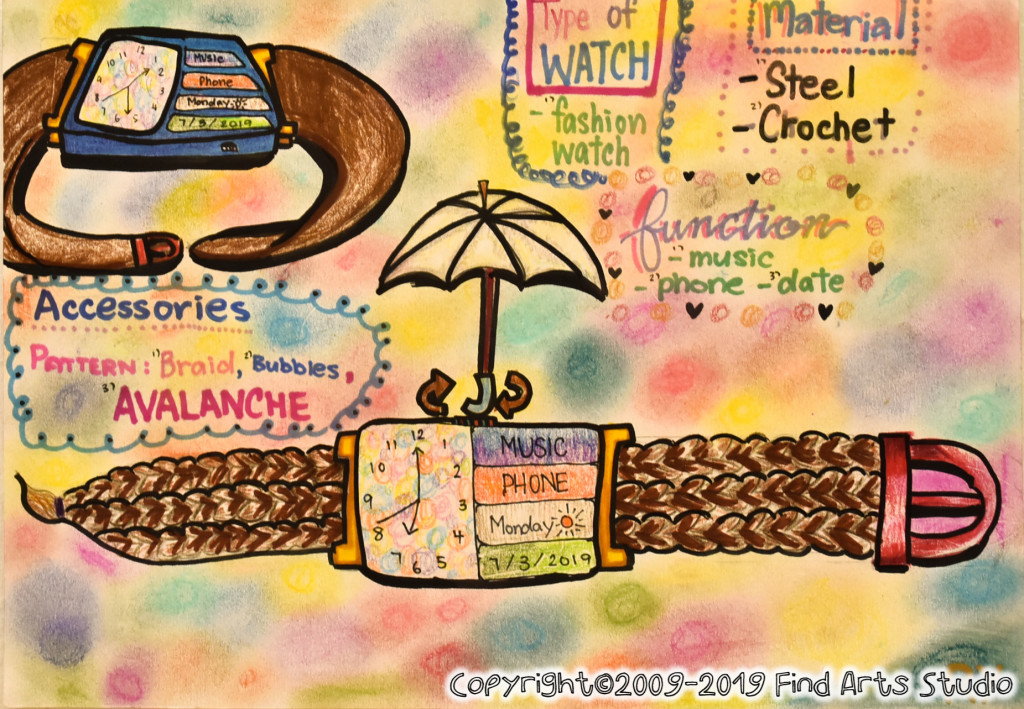 Type of
WATCH
1) -fashion
watch
Material
1) -Steel
2) -Crochet
function
1) -music
2) -phone 3) -date
12
11
1
10
2
9
3
8
4
7
6
5
MUSIC
Phone
Monday
7/3/2019
Accessories
PATTERN: 1) Braid, 2) Bubbles,
3) AVALANCHE
12
11
1
10
2
9
3
8
4
7
6
5
MUSIC
PHONE
Monday-
7/3/2019
Copyright©2009-2019 Find Arts Studio